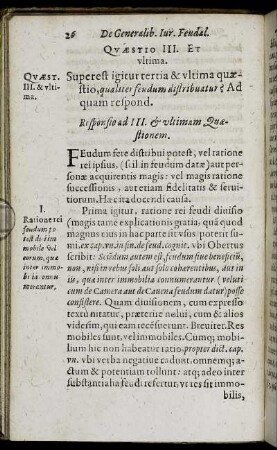 26 De Generalib. Iur. Feudal.
QVÆSTIO III. ET
vltima.
QVÆST.
III. & vlti-
ma.
Superest igitur tertia & vltima quæ-
stio, qualiter feudum distribuatur? Ad
quam respond.
Responsio ad III. & vltimam Quæ-
stionem.
FEudum fere distribui potest, vel ratione
rei ipsius, (s. il in feudum datæ) aut per-
sonæ acquirentis magis: vel magis ratione
successionis, aut etiam fidelitatis & serui-
tiorum. Hæc in a docendi causa.
I.
Ratione rei
feudum po-
test de im-
mobile vel
eorum, qua
inter immo-
bilia conu-
muerantur,
Prima igitur, ratione rei feudi diuisio
(magis tamē explicationis gratia, quā quod
magnus eius in hac parte sit vsus) poterit su-
mi ex cap. vn. in fin. de feud. cognit. vbi Obertus
scribit: Sciēdum autem est, feudum siue benefici-
um, non nisi in rebus soli aut solo cohærentibus, aut in
iis, quæ inter immobilia connumerantur (veluti
cum de Camera aut de Caueua feudum datur) posse
consistere. Quam diuisionem, cum expresso
textu nitatur, præterire nolui, cum & alios
viderim, qui eam recensuerunt. Breuiter. Res
mobiles sunt, vel immobiles. Cumq; mobi-
lium hic non habeatur ratio, propter dict. cap.
vn. vbi verba negatiue cadunt, omnemq; a-
ctum & potentiam tollunt: atq; adeo inter
substantialia feudi refertur, vt res sit immo-
bilis,